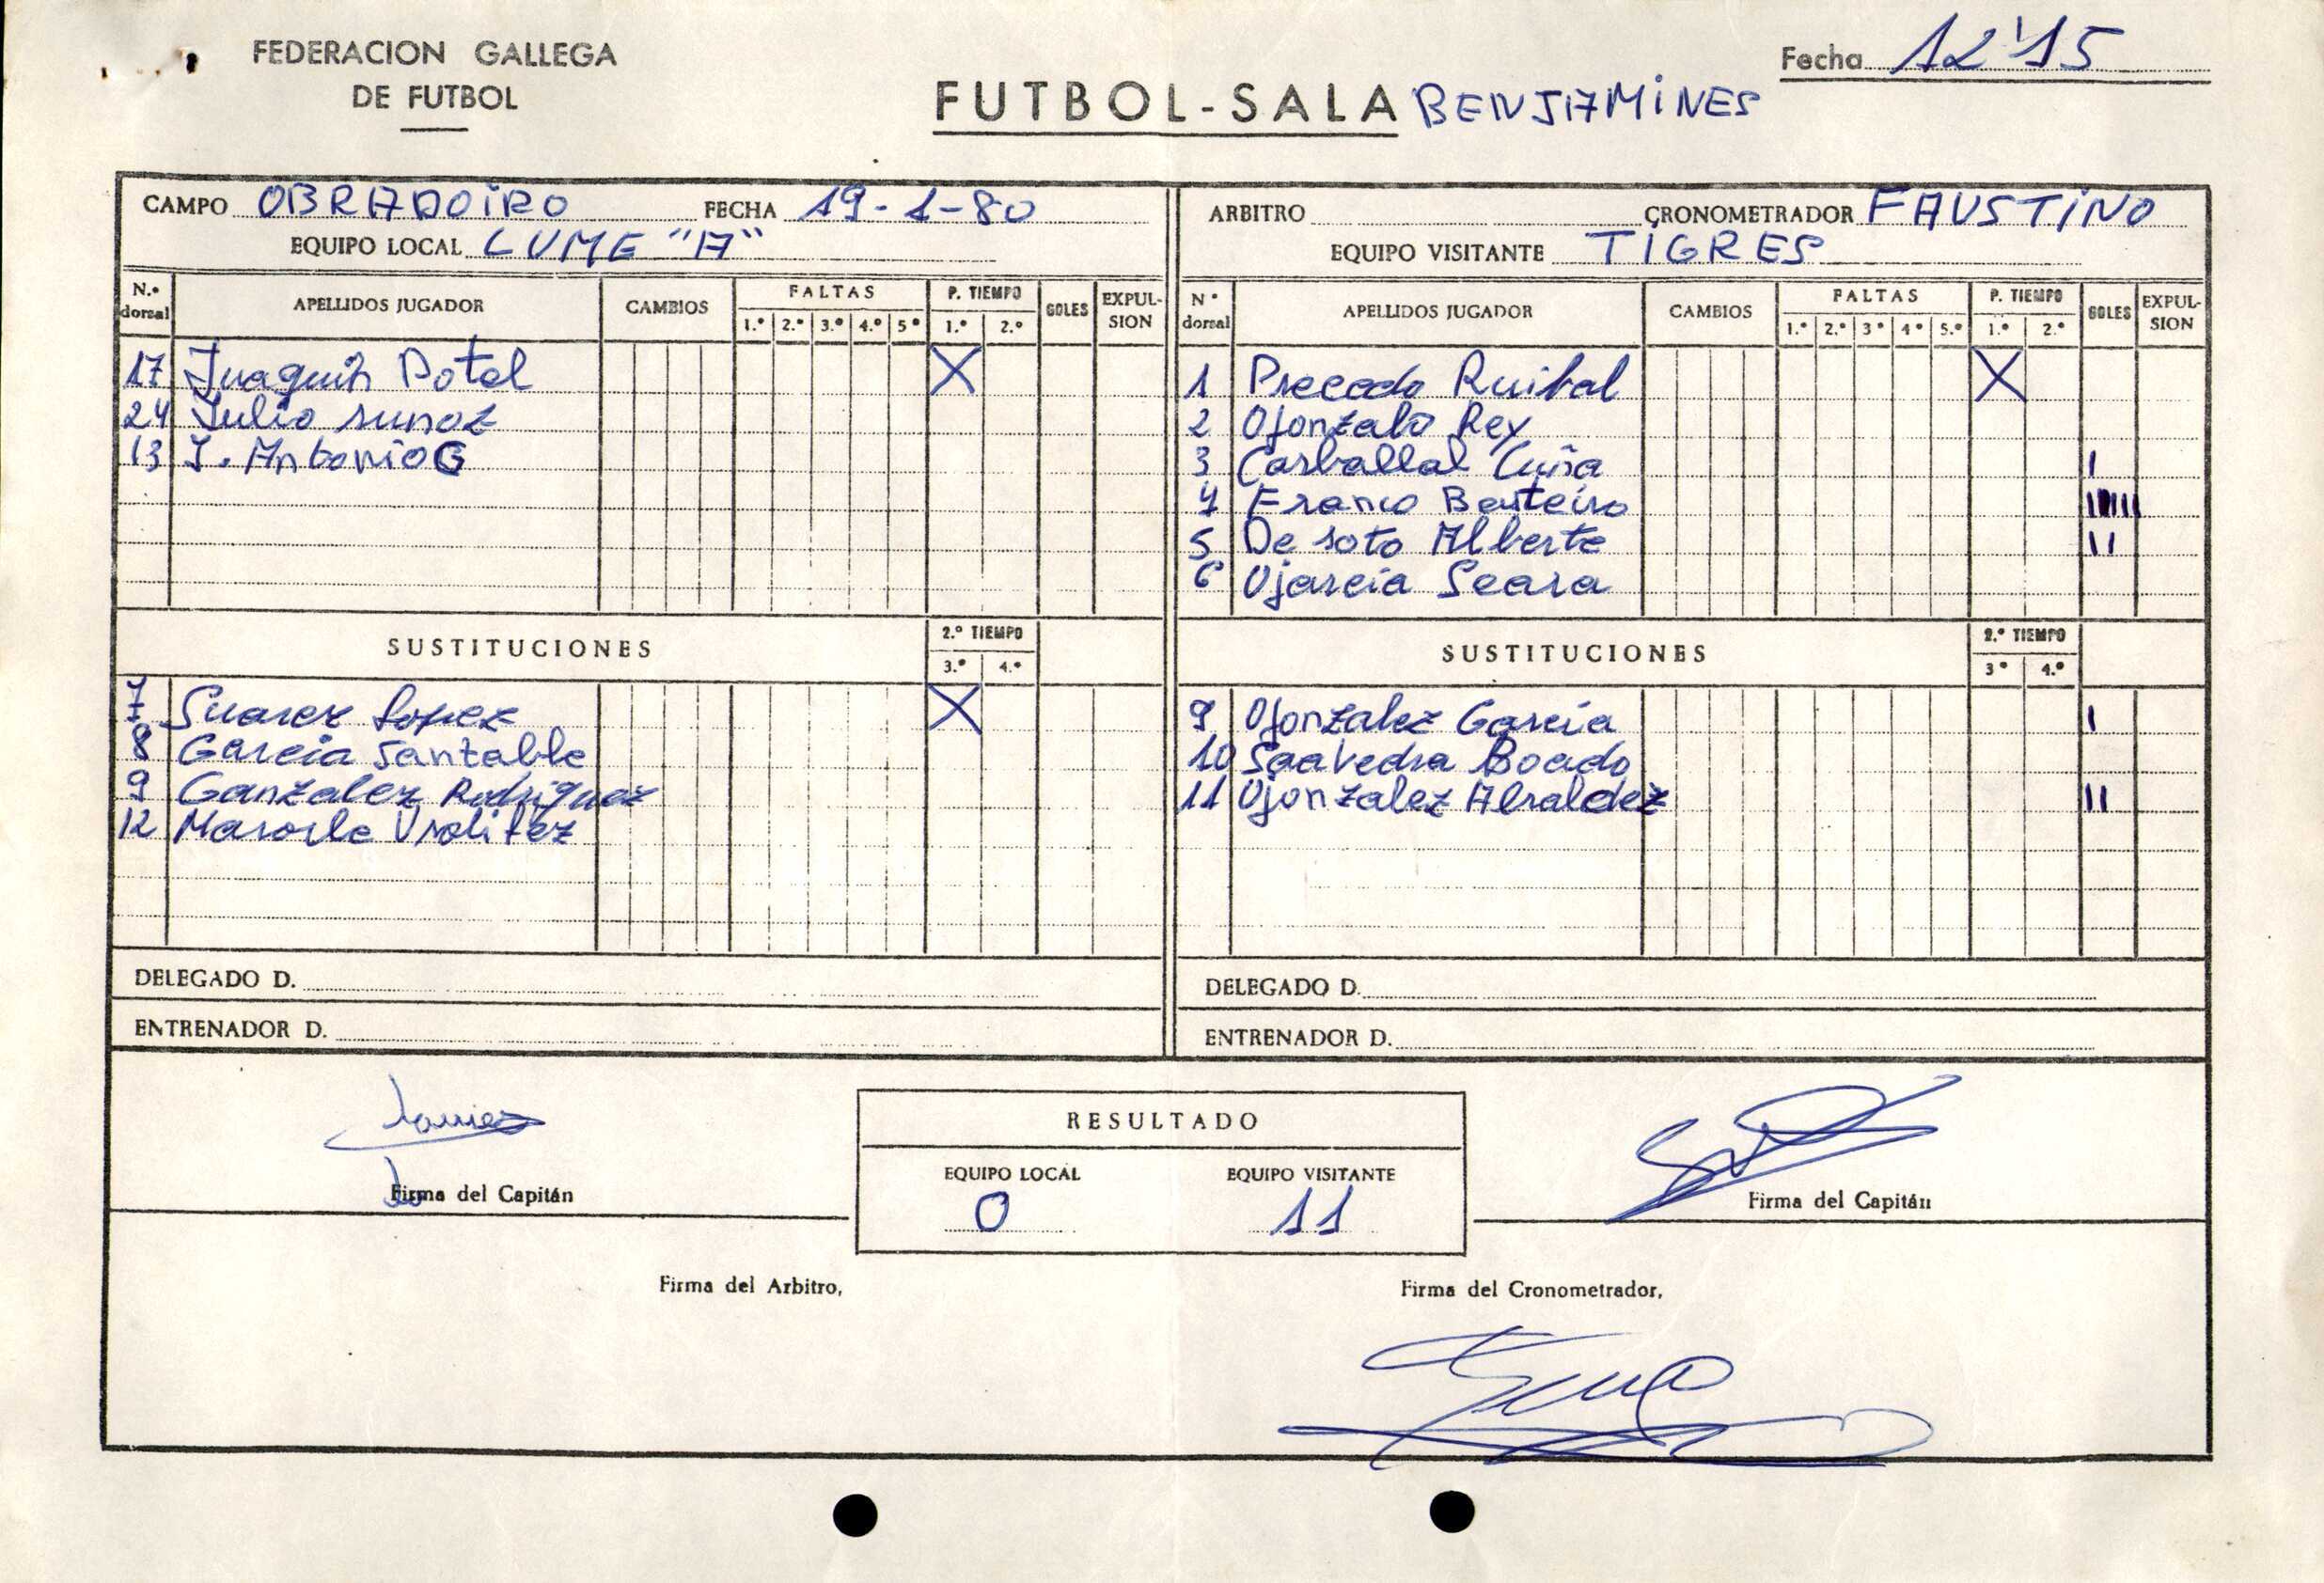 FEDERACION GALLEGA
DE FUTBOL
Fecha 12'15
FUTBOL-SALA BENJAMINES
CAMPO OBRADOIRO FECHA 19-1-80
EQUIPO LOCAL LUME "A"
N.º dorsal APELLIDOS JUGADOR CAMBIOS FALTAS 1.º 2.º 3.º 4.º 5º P. TIEMPO 1.º 2.º GOLES EXPULSION
17 Juaquin Dotal X
24 Julio
13 J. Antonio G
SUSTITUCIONES 2.º TIEMPO 3.º 4.º
7 Suarez Lopez X
8 Garcia
9 Ganzalez Rodriguez
12
DELEGADO D.
ENTRENADOR D.
ARBITRO CRONOMETRADOR FAUSTINO
EQUIPO VISITANTE TIGRES
Nº dorsal APELLIDOS JUGADOR CAMBIOS FALTAS 1.º 2.º 3º 4º 5.º P. TIEMPO 1.º 2.º GOLES EXPULSION
1 Precedo Ruibal X
2 Gonzalo Rey
3 Carballal Cuña I
4 Franco Barteiro
5 De soto Alberte II
6 Garcia Seara
SUSTITUCIONES 2.º TIEMPO 3º 4.º
9 Gonzalez Garcia I
10 Saavedra Boado
11 Gonzalez II
DELEGADO D.
ENTRENADOR D.
Firma del Capitán
RESULTADO
EQUIPO LOCAL EQUIPO VISITANTE
0 11
Firma del Capitán
Firma del Arbitro,
Firma del Cronometrador,